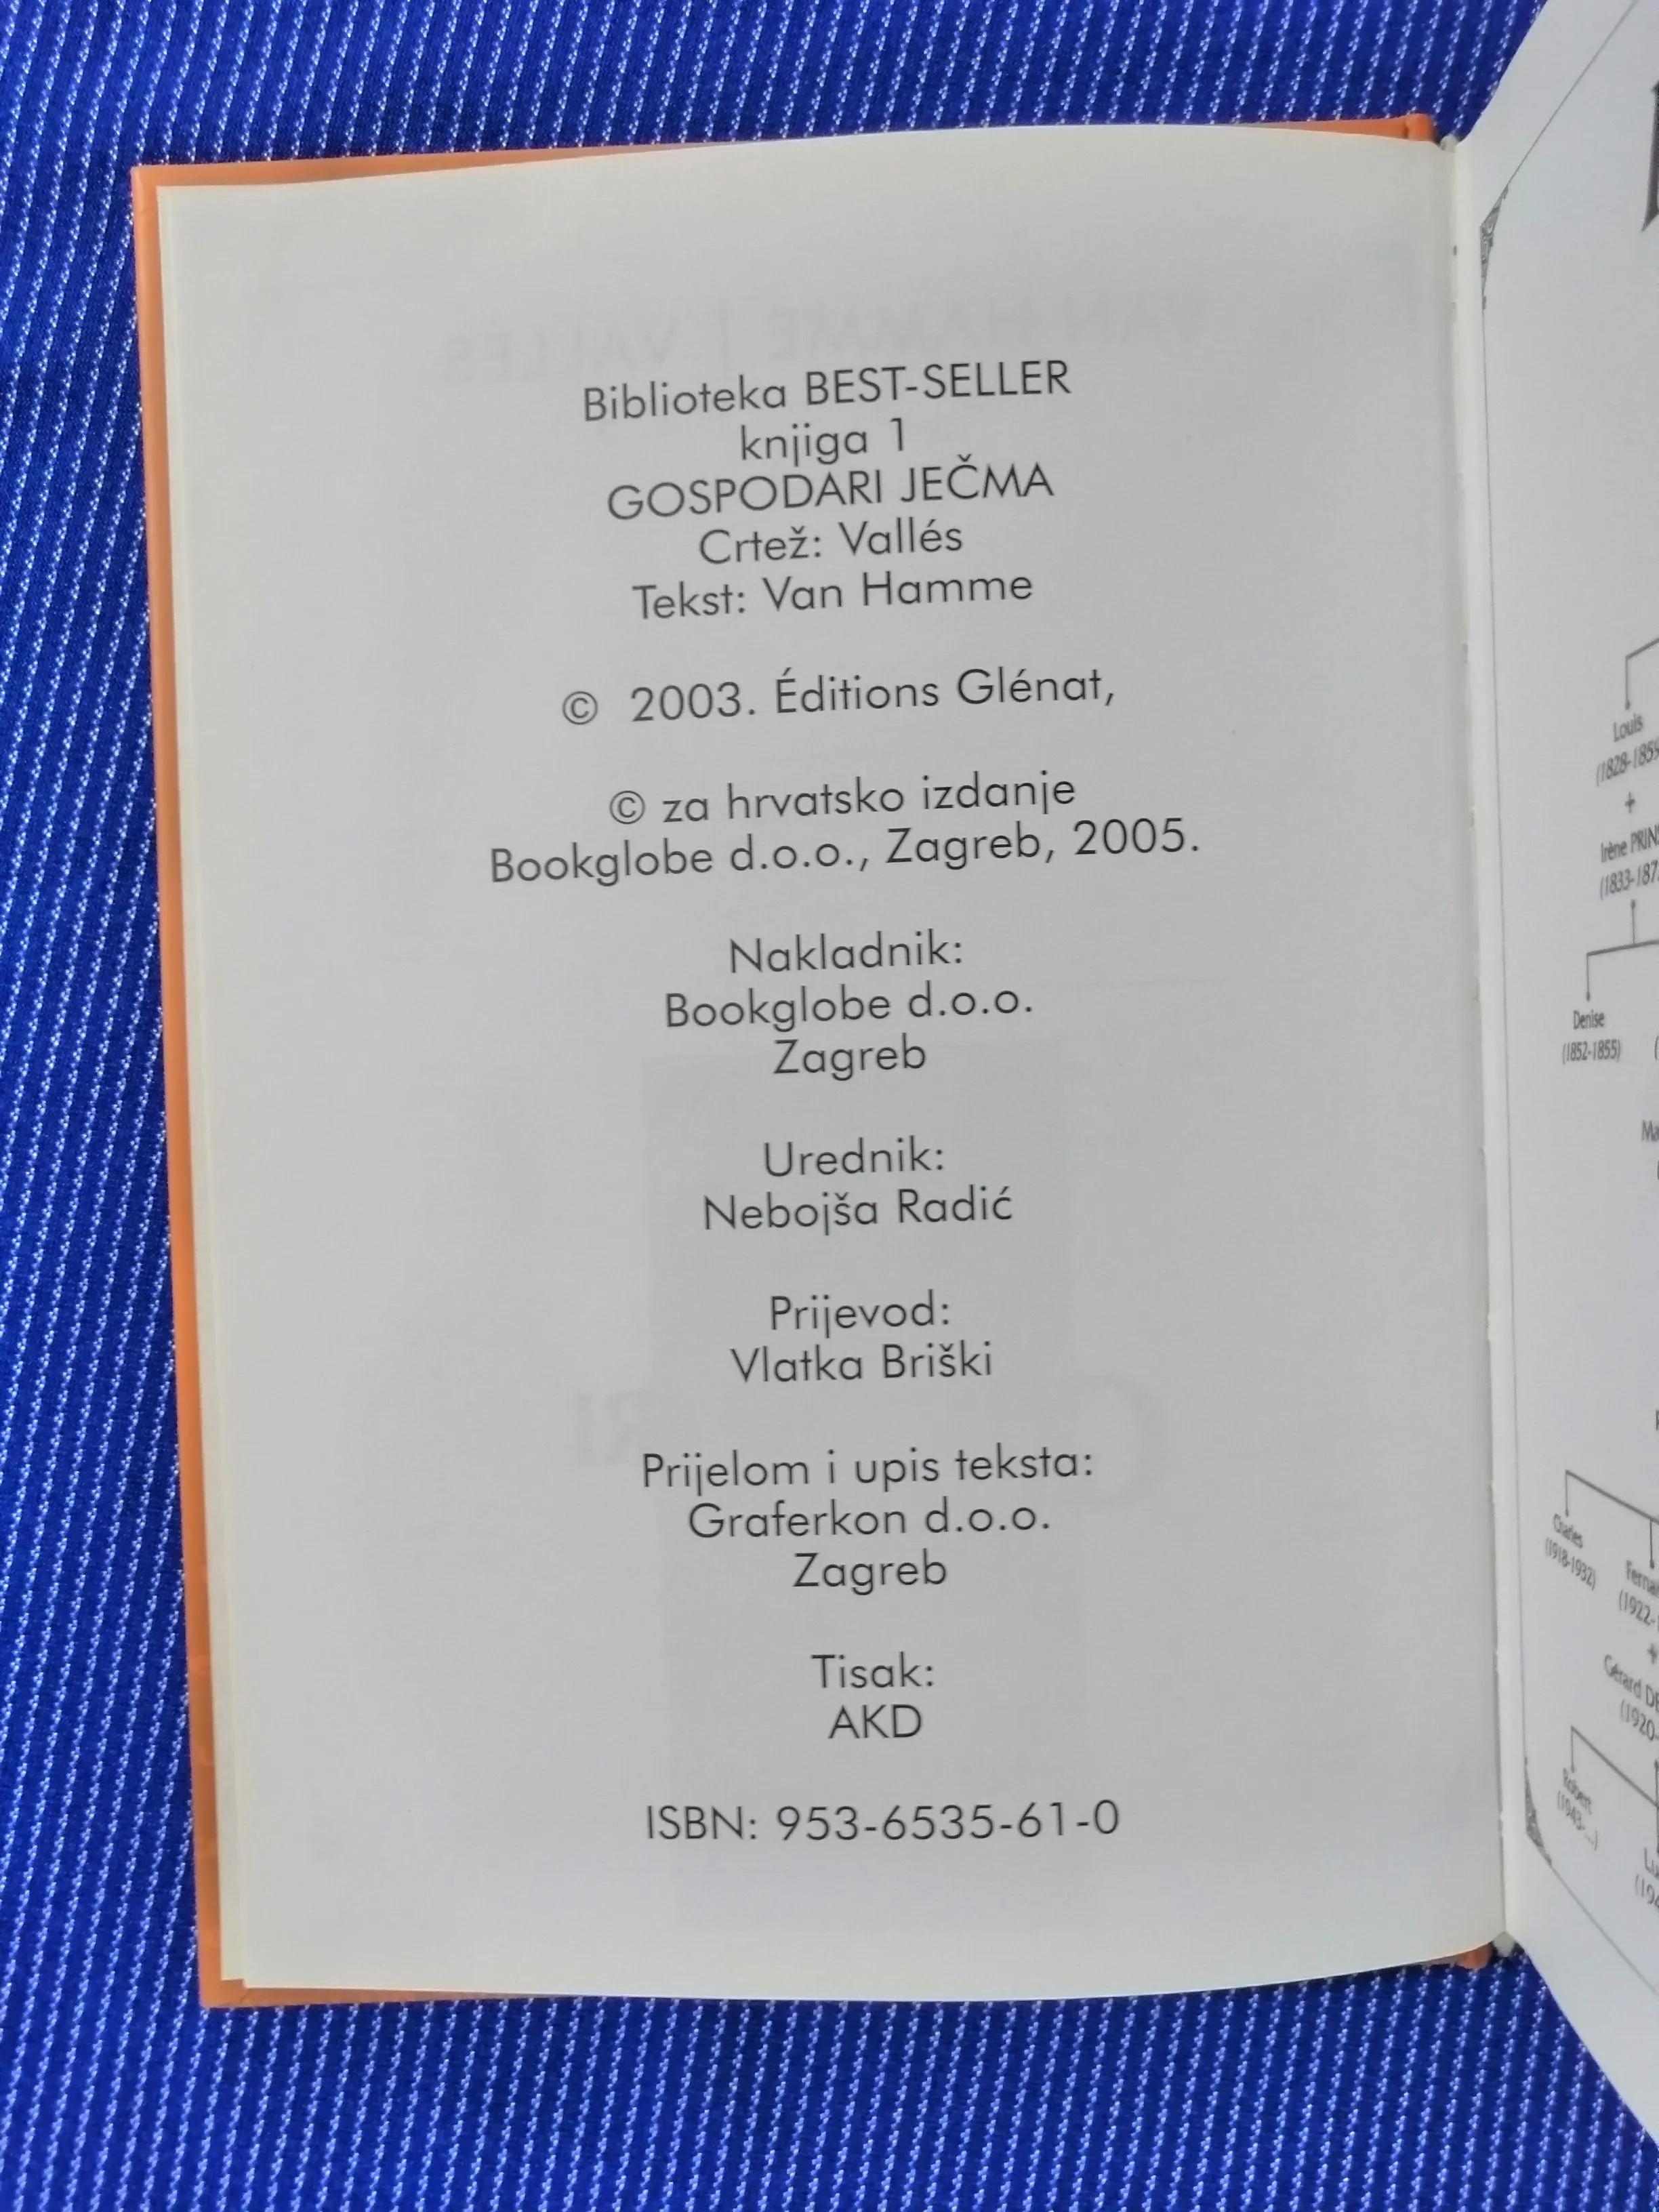 Biblioteka BEST-SELLER
knjiga 1
GOSPODARI JEČMA
Crtež: Vallés
Tekst: Van Hamme
© 2003. Éditions Glénat,
© za hrvatsko izdanje
Bookglobe d.o.o., Zagreb, 2005.
Nakladnik:
Bookglobe d.o.o.
Zagreb
Urednik:
Nebojša Radić
Prijevod:
Vlatka Briški
Prijelom i upis teksta:
Graferkon d.o.o.
Zagreb
Tisak:
AKD
ISBN: 953-6535-61-0
Louis
(1828-1859
+
Irène
(1833-187
Denise
(1852-1855)
Charles
(1918-1932)
(1922-
+
Gérard
(1920-
Robert
(1943-...)